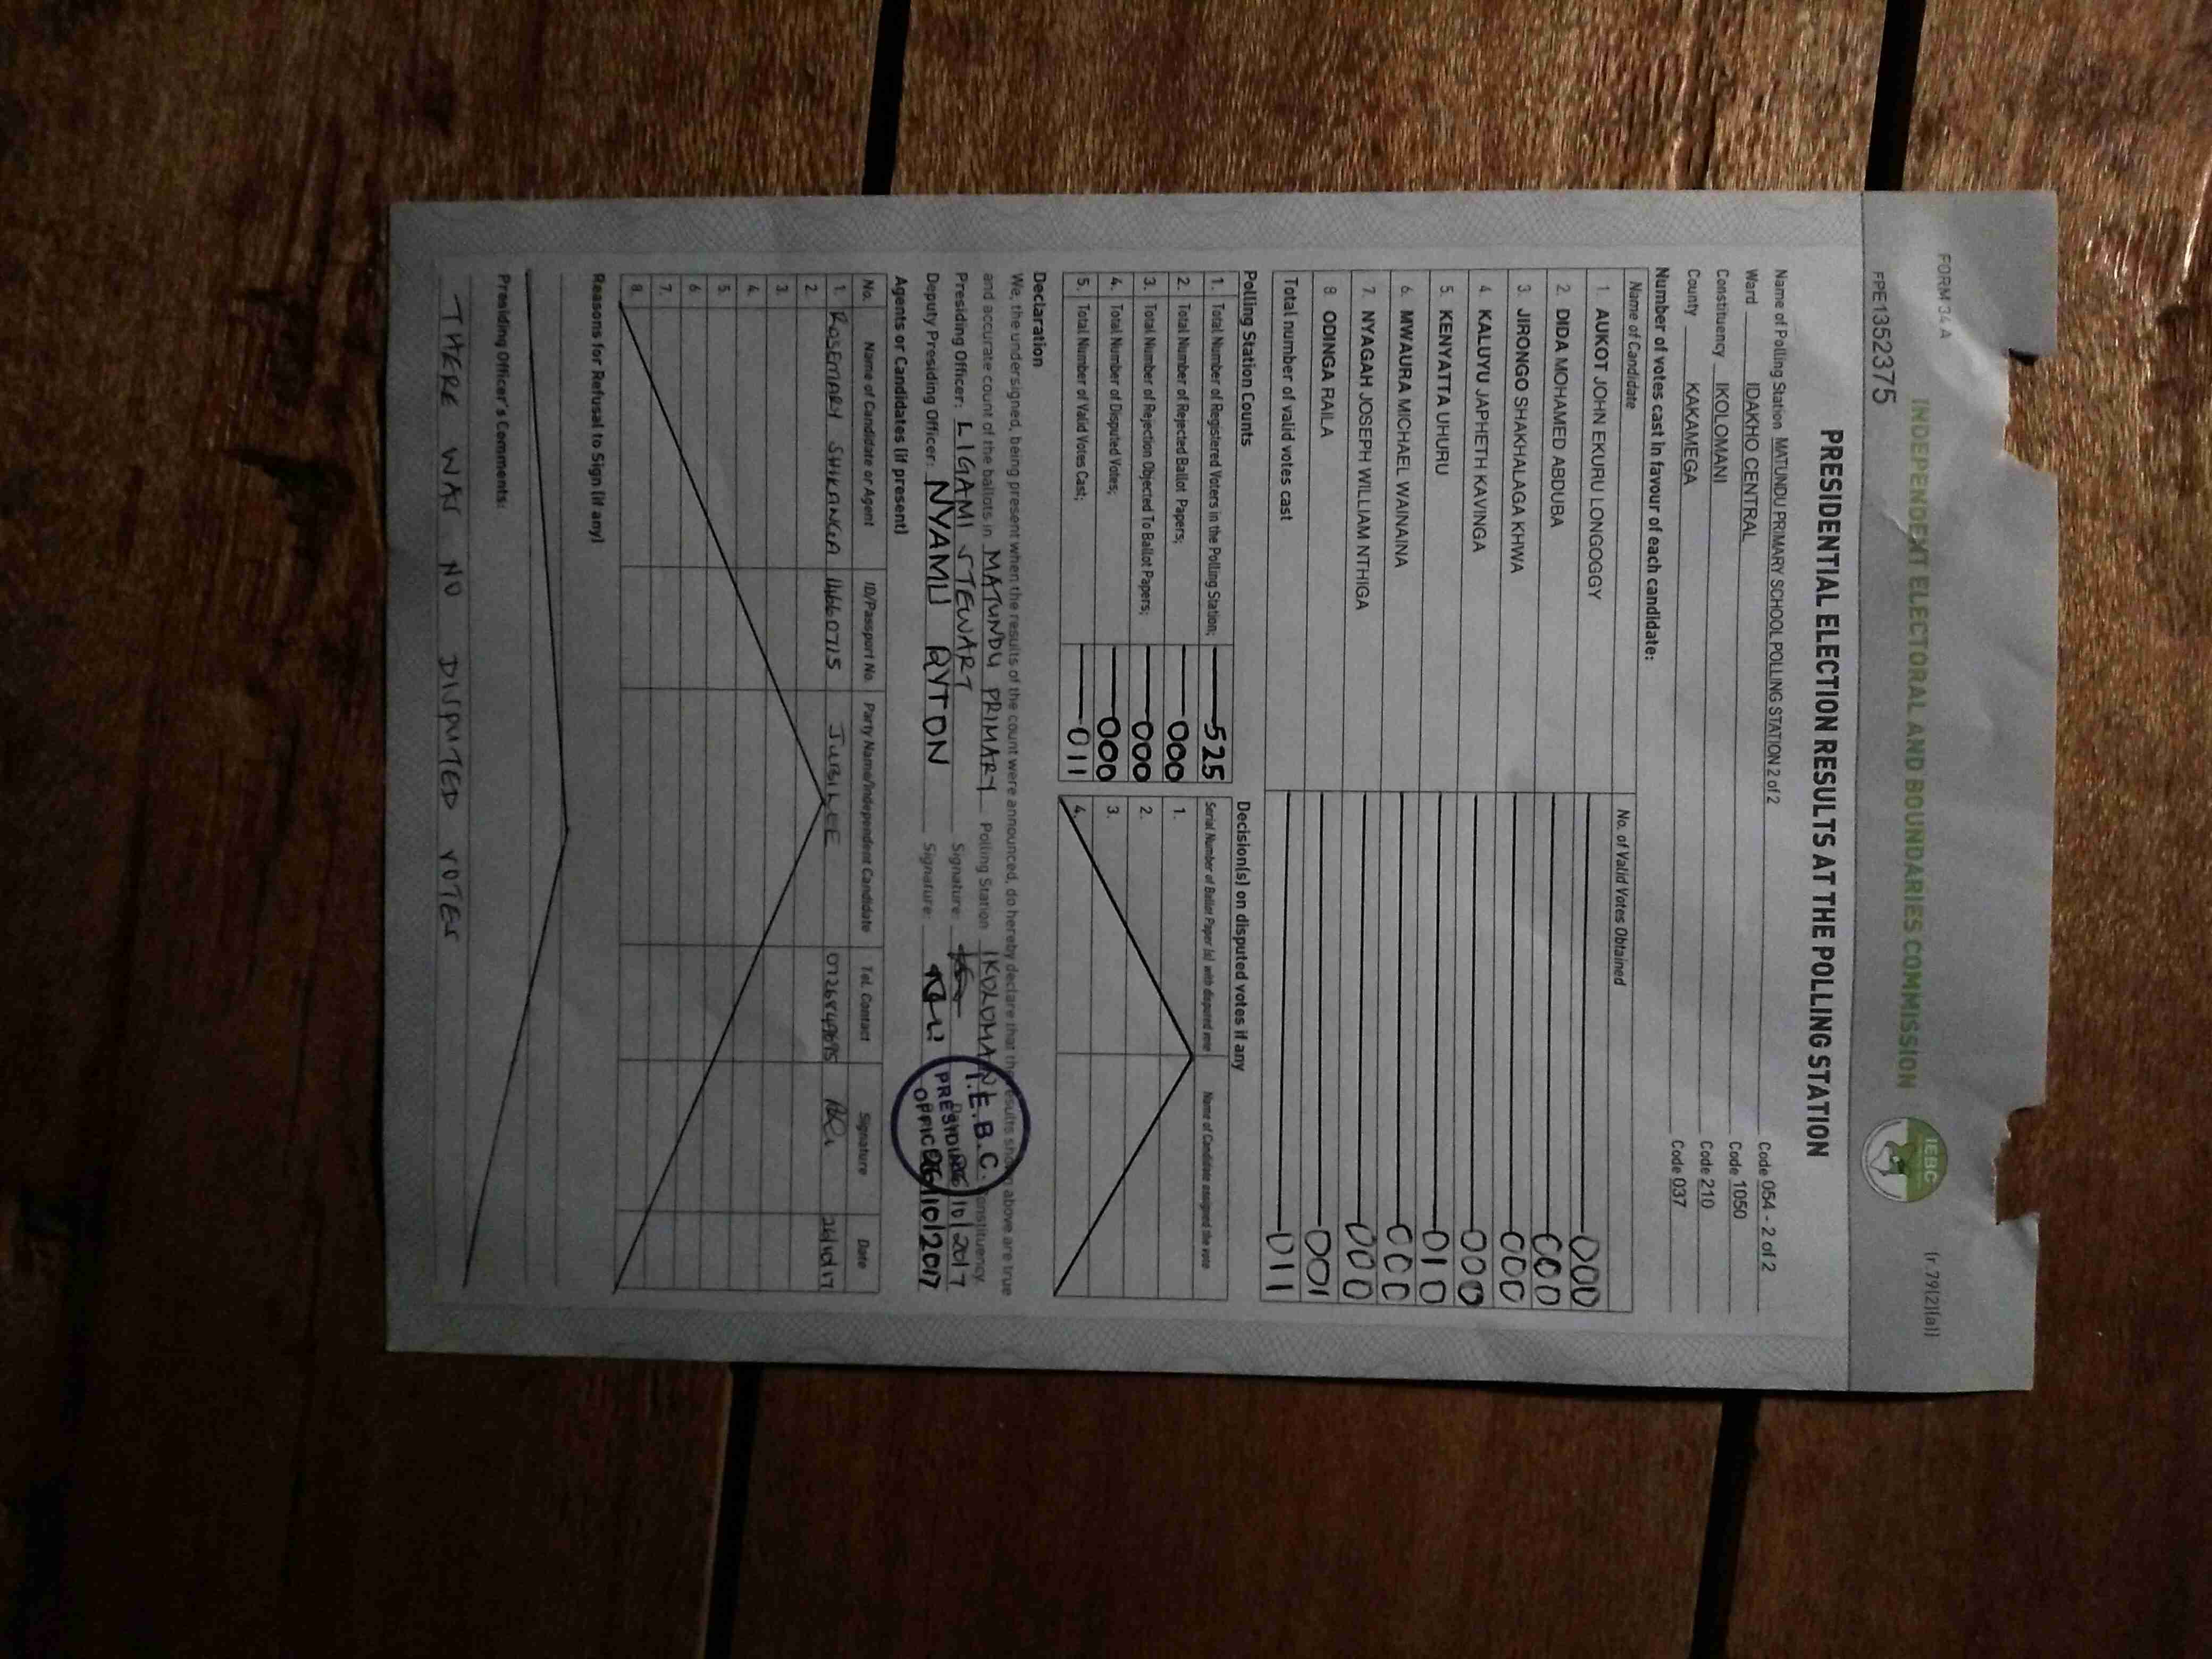 FORM 34 A
(r.79(2)(a))
INDEPENDENT ELECTORAL AND BOUNDARIES COMMISSION
IEBC
FPE1352375
PRESIDENTIAL ELECTION RESULTS AT THE POLLING STATION
Name of Polling Station MATUNDU PRIMARY SCHOOL POLLING STATION 2 of 2 Code 054 - 2 of 2
Ward IDAKHO CENTRAL Code 1050
Constituency IKOLOMANI Code 210
County KAKAMEGA Code 037
Number of votes cast in favour of each candidate:
Name of Candidate No. of Valid Votes Obtained
1. AUKOT JOHN EKURU LONGOGGY 000
2. DIDA MOHAMED ABDUBA 000
3. JIRONGO SHAKHALAGA KHWA 000
4. KALUYU JAPHETH KAVINGA 000
5. KENYATTA UHURU 010
6. MWAURA MICHAEL WAINAINA 000
7. NYAGAH JOSEPH WILLIAM NTHIGA 000
8. ODINGA RAILA 001
Total number of valid votes cast 011
Polling Station Counts
1. Total Number of Registered Voters in the Polling Station; 525
2. Total Number of Rejected Ballot Papers; 000
3. Total Number of Rejection Objected To Ballot Papers; 000
4. Total Number of Disputed Votes; 000
5. Total Number of Valid Votes Cast; 011
Decision(s) on disputed votes if any
Serial Number of Ballot Paper (s) with disputed vote Name of Candidate assigned the vote
1.
2.
3.
4.
Declaration
We, the undersigned, being present when the results of the count were announced, do hereby declare that the results shown above are true
and accurate count of the ballots in MATUNDU PRIMARY Polling Station IKOLOMANI Constituency.
Presiding Officer: LIGAMI STEWART Signature: Date 26/10/2017
Deputy Presiding Officer: NYAMU RYTON Signature: 26/10/2017
I.E.B.C.
PRESIDING
OFFICER
Agents or Candidates (if present)
No. Name of Candidate or Agent ID/Passport No. Party Name/Independent Candidate Tel. Contact Signature Date
1. ROSEMARY SHIKANGA 14660715 JUBILEE 26/10/17
2.
3.
4.
5.
6.
7.
8.
Reasons for Refusal to Sign (if any)
Presiding Officer's Comments:
THERE WAS NO DISPUTED VOTES